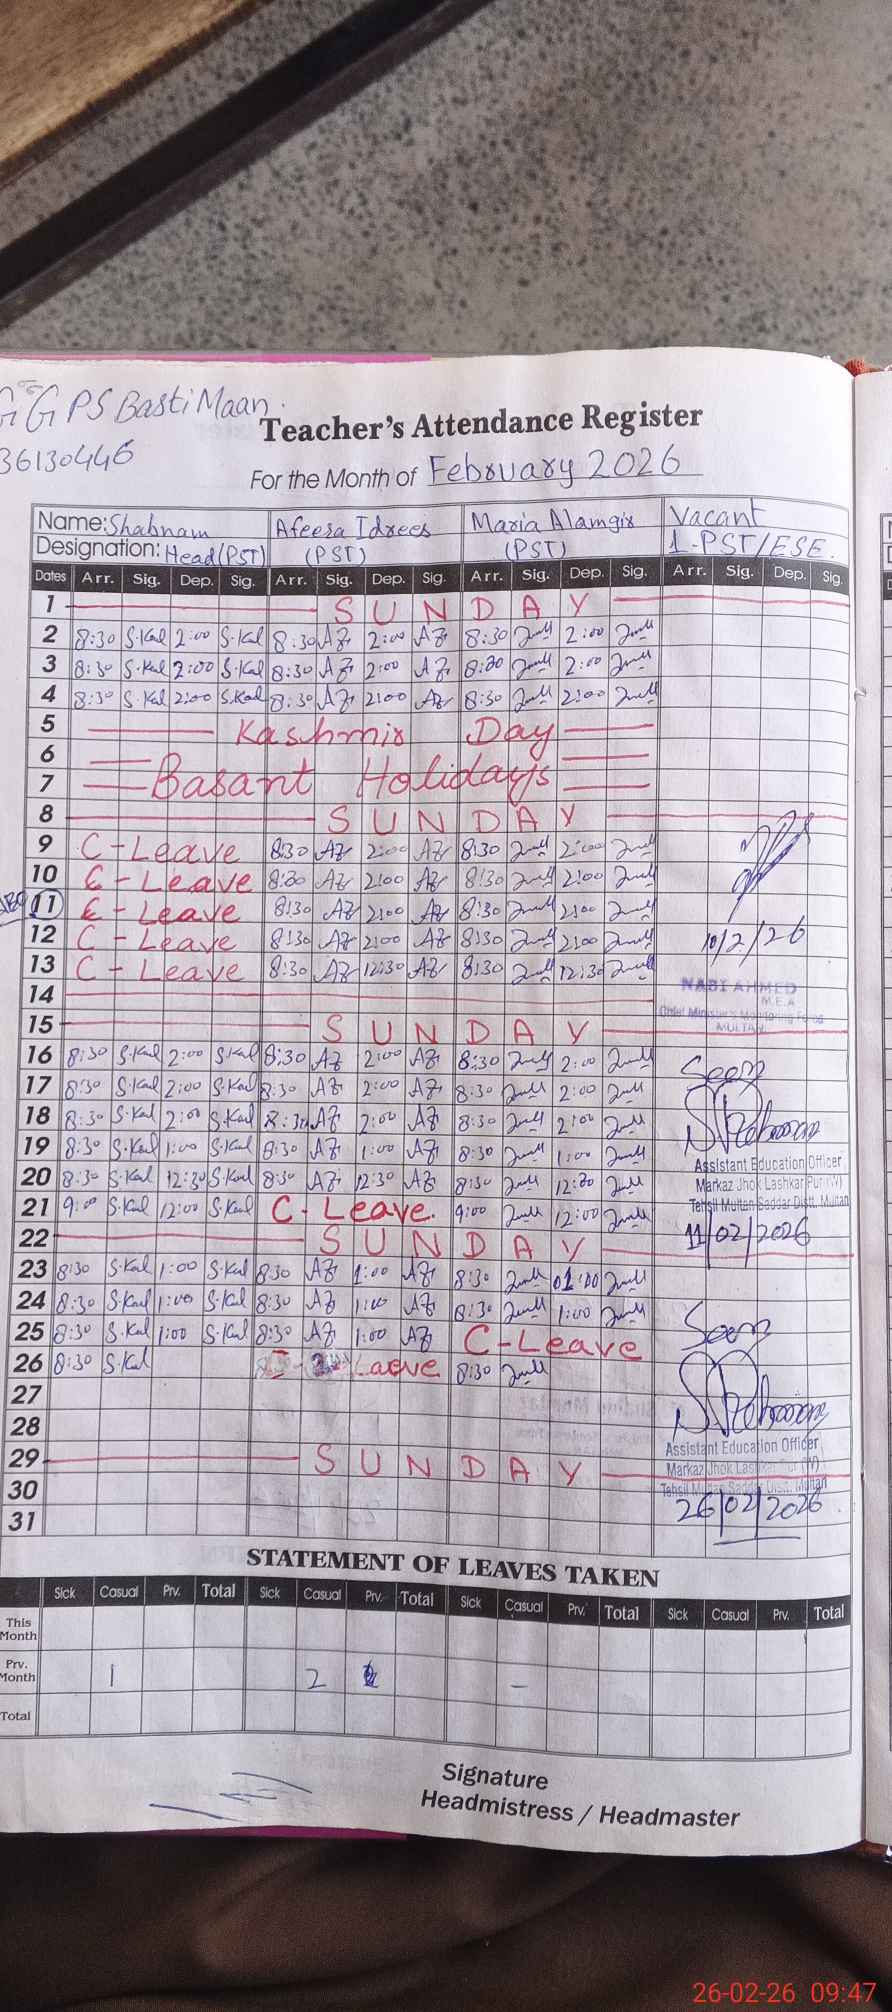 GGPS Basti Maan.
36130446
Teacher's Attendance Register
For the Month of February 2026
Name: Shabnam Afeera Idrees Maria Alamgir Vacant
Designation: Head (PST) (PST) (PST) 1-PST/ESE.
Dates Arr. Sig. Dep. Sig. Arr. Sig. Dep. Sig. Arr. Sig. Dep. Sig. Arr. Sig. Dep. Sig.
1 SUNDAY
2 8:30 S.Kul 2:00 S.Kul 8:30 AZ 2:00 AZ 8:30 2:00
3 8:30 S.Kul 2:00 S.Kul 8:30 AZ 2:00 AZ 8:30 2:00
4 8:30 S.Kul 2:00 S.Kul 8:30 AZ 2:00 AZ 8:30 2:00
5 Kashmir Day
6
7 Basant Holidays
8 SUNDAY
9 C-Leave 8:30 AZ 2:00 AZ 8:30 2:00
10 C-Leave 8:30 AZ 2:00 AZ 8:30 2:00
11 C-Leave 8:30 AZ 2:00 AZ 8:30 2:00
12 C-Leave 8:30 AZ 2:00 AZ 8:30 2:00 10/2/26
13 C-Leave 8:30 AZ 12:30 AZ 8:30 12:30
NABI AHMED
14 M.E.A
Chief Minister's Monitoring Force
15 SUNDAY MULTAN
16 8:30 S.Kul 2:00 S.Kul 8:30 AZ 2:00 AZ 8:30 2:00 Seen
17 8:30 S.Kul 2:00 S.Kul 8:30 AZ 2:00 AZ 8:30 2:00
18 8:30 S.Kul 2:00 S.Kul 8:30 AZ 2:00 AZ 8:30 2:00
19 8:30 S.Kul 1:00 S.Kul 8:30 AZ 1:00 AZ 8:30 1:00
Assistant Education Officer
20 8:30 S.Kul 12:30 S.Kul 8:30 AZ 12:30 AZ 8:30 12:30 Markaz Jhok Lashkar Pur (W)
21 9:00 S.Kul 12:00 S.Kul C-Leave. 9:00 12:00 Tehsil Multan Saddar Distt. Multan
22 SUNDAY 11/02/2026
23 8:30 S.Kul 1:00 S.Kul 8:30 AZ 1:00 AZ 8:30 01:00
24 8:30 S.Kul 1:00 S.Kul 8:30 AZ 1:00 AZ 8:30 1:00
25 8:30 S.Kul 1:00 S.Kul 8:30 AZ 1:00 AZ C-Leave Seen
26 8:30 S.Kul Laeve 8:30
27
28
Assistant Education Officer
29 SUNDAY Markaz Jhok Lashkar Pur (W)
Tehsil Multan Saddar Distt. Multan
30 26/02/2026
31
STATEMENT OF LEAVES TAKEN
Sick Casual Prv. Total Sick Casual Prv. Total Sick Casual Prv. Total Sick Casual Prv. Total
This Month
Prv. Month 1 2 -
Total
Signature
Headmistress / Headmaster
26-02-26 09:47